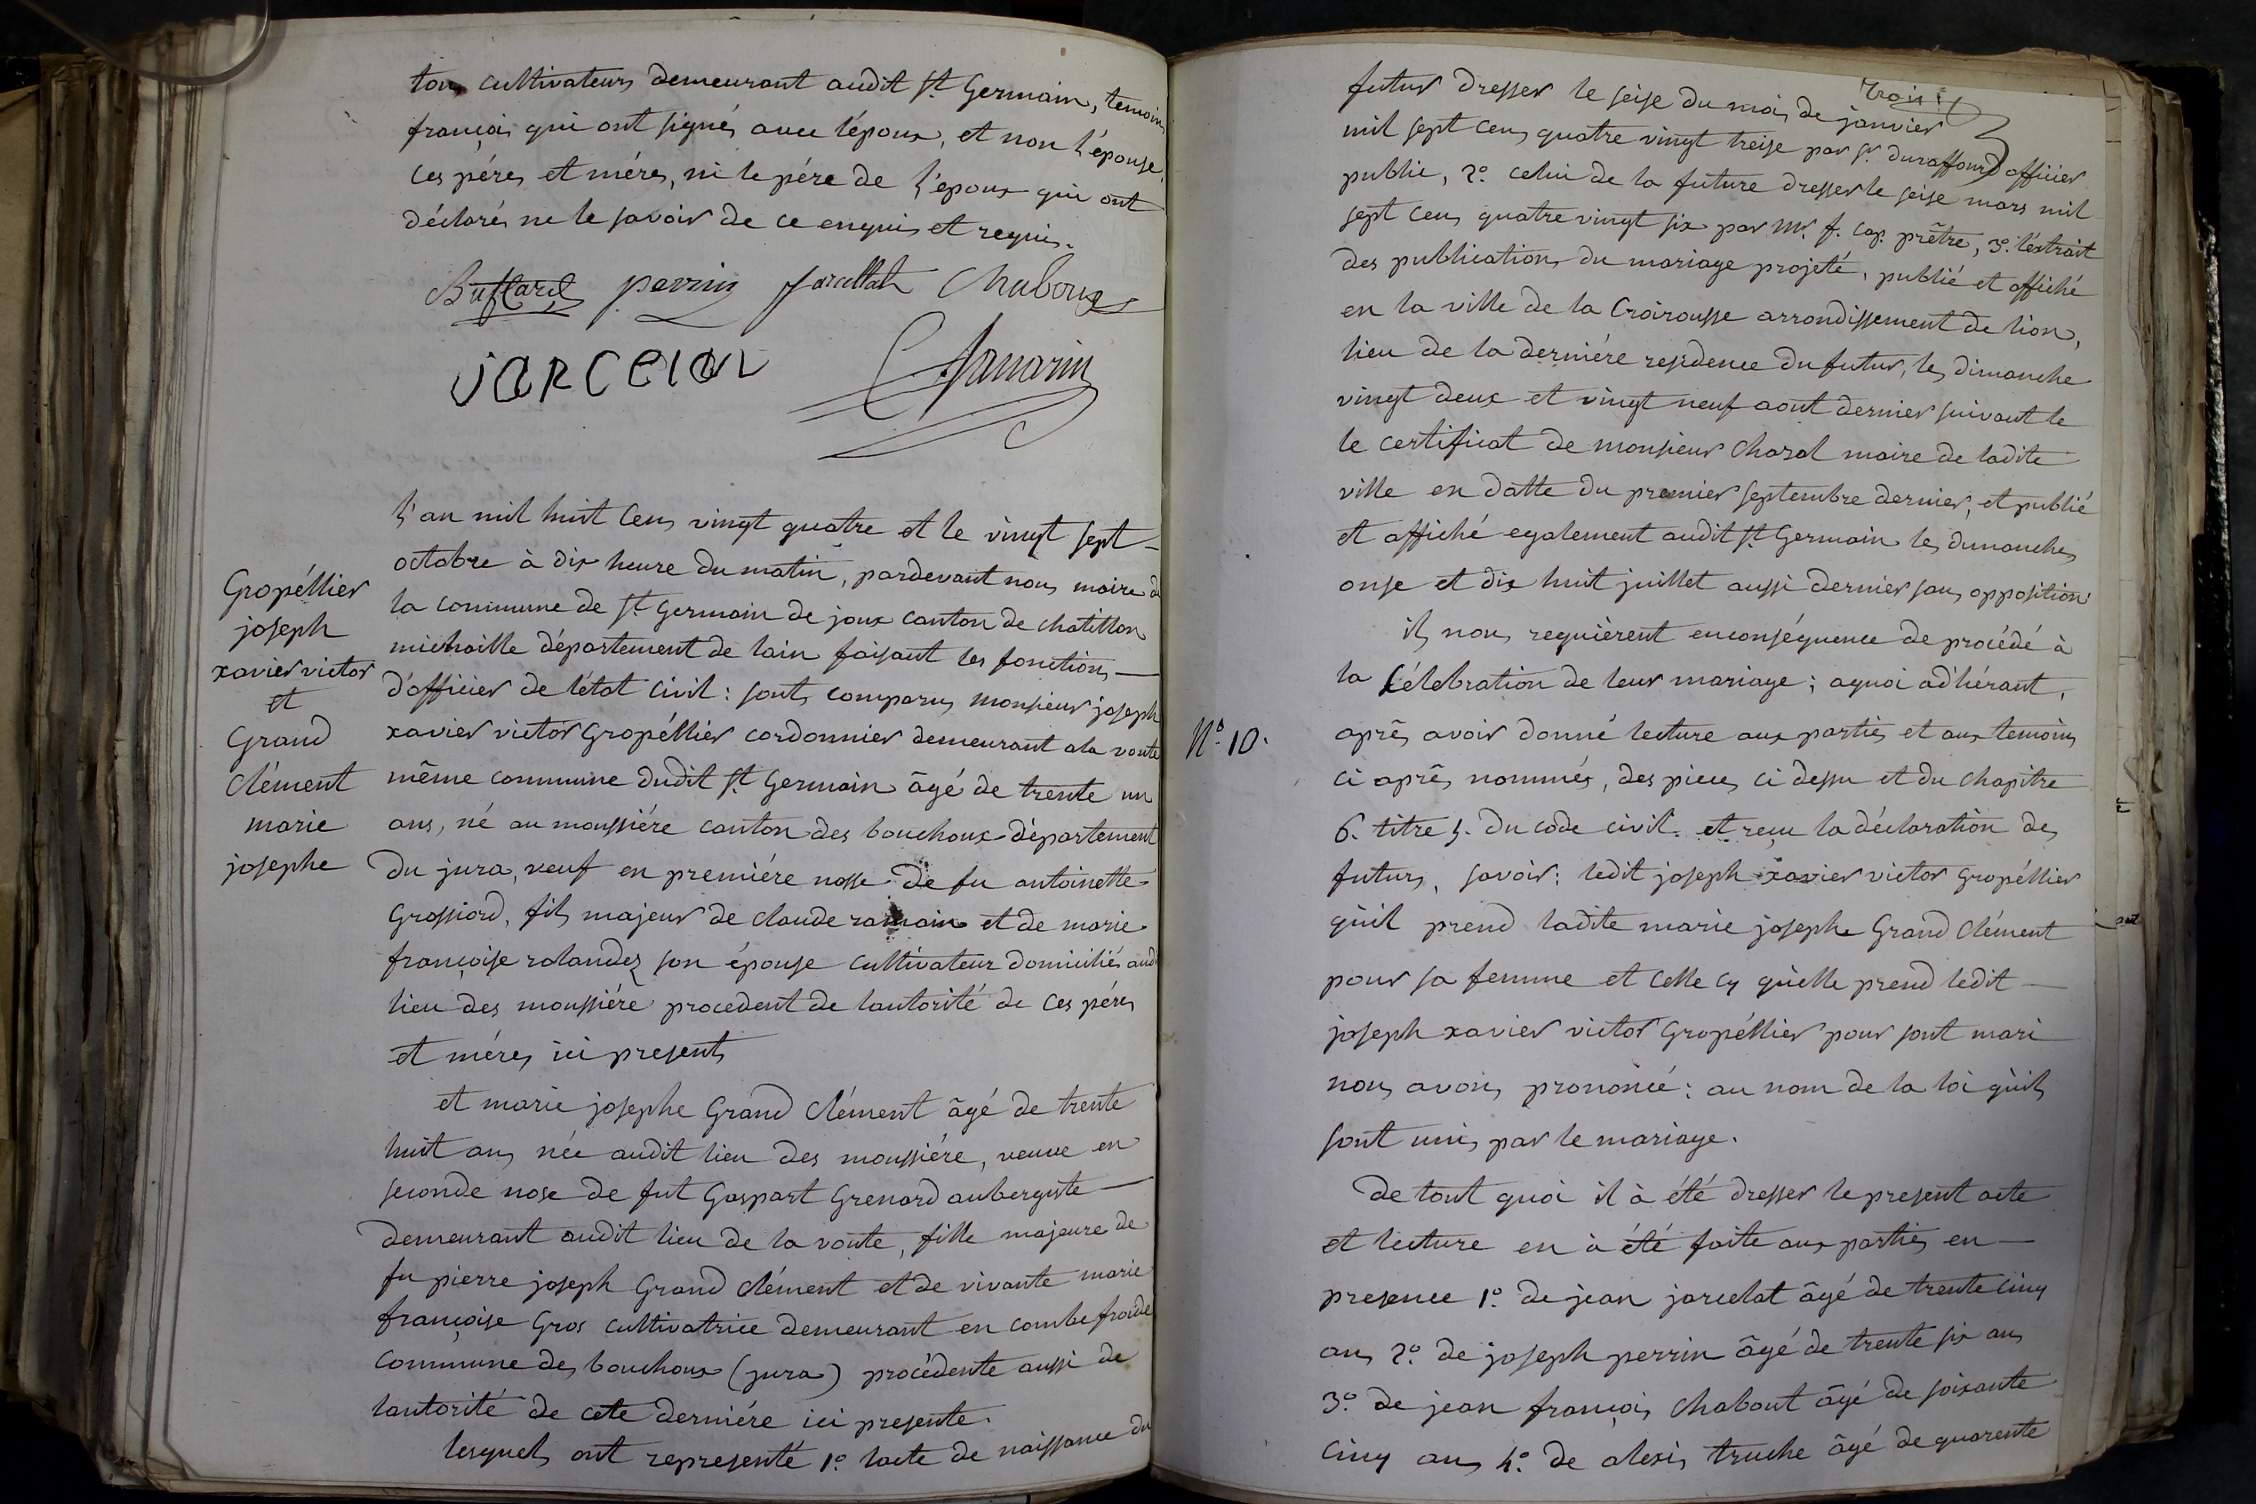 tous cultivateurs demeurant audit St. Germain, temoins
françois qui ont signés avec l'époux, et non l'épouse,
ces péres et méres, ni le pére de l'epoux qui ont
déclarés ne le savoir de ce enquis et requis.
Buffard perrin jarcellat Chaboux
jARCElat
l'an mil huit cens vingt quatre et le vingt sept
octobre à dix heure du matin, pardevant nous maire de
la commune de St. Germain de joux canton de chatillon
michaille département de lain faisant les fonctions
d'officier de l'état civil : sont comparus monsieur joseph
xavier victor Gropéllier cordonnier demeurant a la voute
même commune dudit St. Germain âgé de trente un
ans, né au moussiére canton des bouchoux département
du jura, veuf en premiére nosse de fu antoinette
Grossiord, fils majeur de claude romain et de marie
françoise rolandez son épouse cultivateur domiciliés aud
lieu des moussiére procedent de lautorité de ces péres
et méres ici presents
et marie josephe Grand Clément âgé de trente
huit ans née audit lieu des moussiére, veuve en
seconde nose de fut Gaspart Grenard aubergiste
demeurant audit lieu de la voute, fille majeure de
fu pierre joseph Grand Clément et de vivante marie
françoise Gros cultivatrice demeurant en combe froide
commune des bouchoux (jura) procédente aussi de
lautorité de cete derniére ici presente.
lesquels ont representé 1º. lacte de naissance du
Gropéllier
joseph
xavier victor
et
Grand
Clément
marie
josephe
trois
futur dresser le seise du mois de janvier
mil sept cens quatre vingt treise par Sr. duraffourd officier
public, 2º. celui de la future dresser le seise mars mil
sept cens quatre vingt six par Mr. f. cap. prêtre, 3º. l'extrait
des publications du mariage projeté, publié et affiché
en la ville de la Croirousse arrondissement de lion,
lieu de la derniére residence du futur, les dimanche
vingt deux et vingt neuf aout dernier suivant le
le certificat de monsieur Chazal maire de ladite
ville en datte du premier septembre dernier, et publié
et affiché egalement audit St. Germain les dimanches
onse et dix huit juillet aussi dernier sans opposition.
ils nous requièrent en conséquence de procédé à
la Célebration de leur mariage ; aquoi adhérant,
après avoir donné lecture aux parties et aux temoins
ci après nommés, des pieces ci dessu et du chapitre
6. titre 5. du code civil. et reçu la déclaration des
futurs, savoir : ledit joseph xavier victor Gropéllier
qu'il prend ladite marie josephe Grand Clément
pour sa femme et celle cy quelle prend ledit
joseph xavier victor Gropéllier pour sont mari
nous avons prononcé : au nom de la loi quils
sont unis par le mariage.
De tout quoi il à été dresser le present acte
et lecture en à été faite aux parties en
presence 1º. de jean jarcelat âgé de trente cinq
ans 2º. de joseph perrin âgé de trente six ans
3º. de jean françois Chabout âgé de soixante
cinq ans 4º. de alexis truche âgé de quarente
Nº. 10.